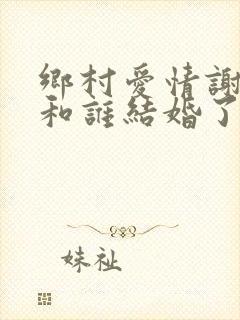 鄉村愛情謝
和誰結婚了
妹祉